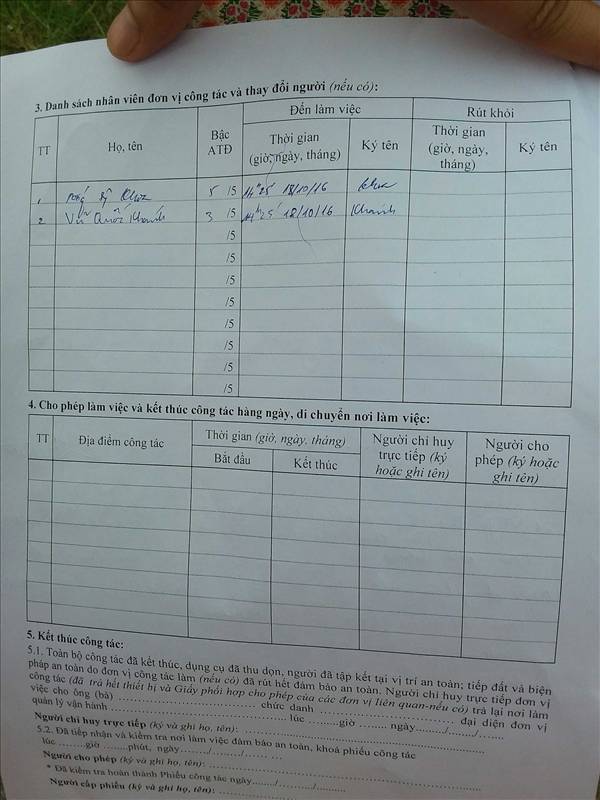 3. Danh sách nhân viên đơn vị công tác và thay đổi người (nếu có):
TT Họ, tên Bậc ATĐ Đến làm việc Rút khỏi
Thời gian (giờ, ngày, tháng) Ký tên Thời gian (giờ, ngày, tháng) Ký tên
1 Sỹ Khoa 5 /5 14h25' 18/10/16 Khoa
2 Vũ Quốc Khánh 3 /5 14h25' 18/10/16 Khánh
/5
/5
/5
/5
/5
/5
/5
/5
4. Cho phép làm việc và kết thúc công tác hàng ngày, di chuyển nơi làm việc:
TT Địa điểm công tác Thời gian (giờ, ngày, tháng) Người chỉ huy trực tiếp (ký hoặc ghi tên) Người cho phép (ký hoặc ghi tên)
Bắt đầu Kết thúc
5. Kết thúc công tác:
5.1. Toàn bộ công tác đã kết thúc, dụng cụ đã thu dọn, người đã tập kết tại vị trí an toàn; tiếp đất và biện
pháp an toàn do đơn vị công tác làm (nếu có) đã rút hết đảm bảo an toàn. Người chỉ huy trực tiếp đơn vị
công tác (đã trả hết thiết bị và Giấy phối hợp cho phép của các đơn vị liên quan-nếu có) trả lại nơi làm
việc cho ông (bà) ........................ chức danh ........................ đại diện đơn vị
quản lý vận hành ........................ lúc ........giờ ........ ngày......../......../........
Người chỉ huy trực tiếp (ký và ghi họ, tên): ........................
5.2. Đã tiếp nhận và kiểm tra nơi làm việc đảm bảo an toàn, khoá phiếu công tác
lúc ........giờ ........phút, ngày ......../......../........
Người cho phép (ký và ghi họ, tên): ........................
* Đã kiểm tra hoàn thành Phiếu công tác ngày......../......../........
Người cấp phiếu (ký và ghi họ, tên): ........................